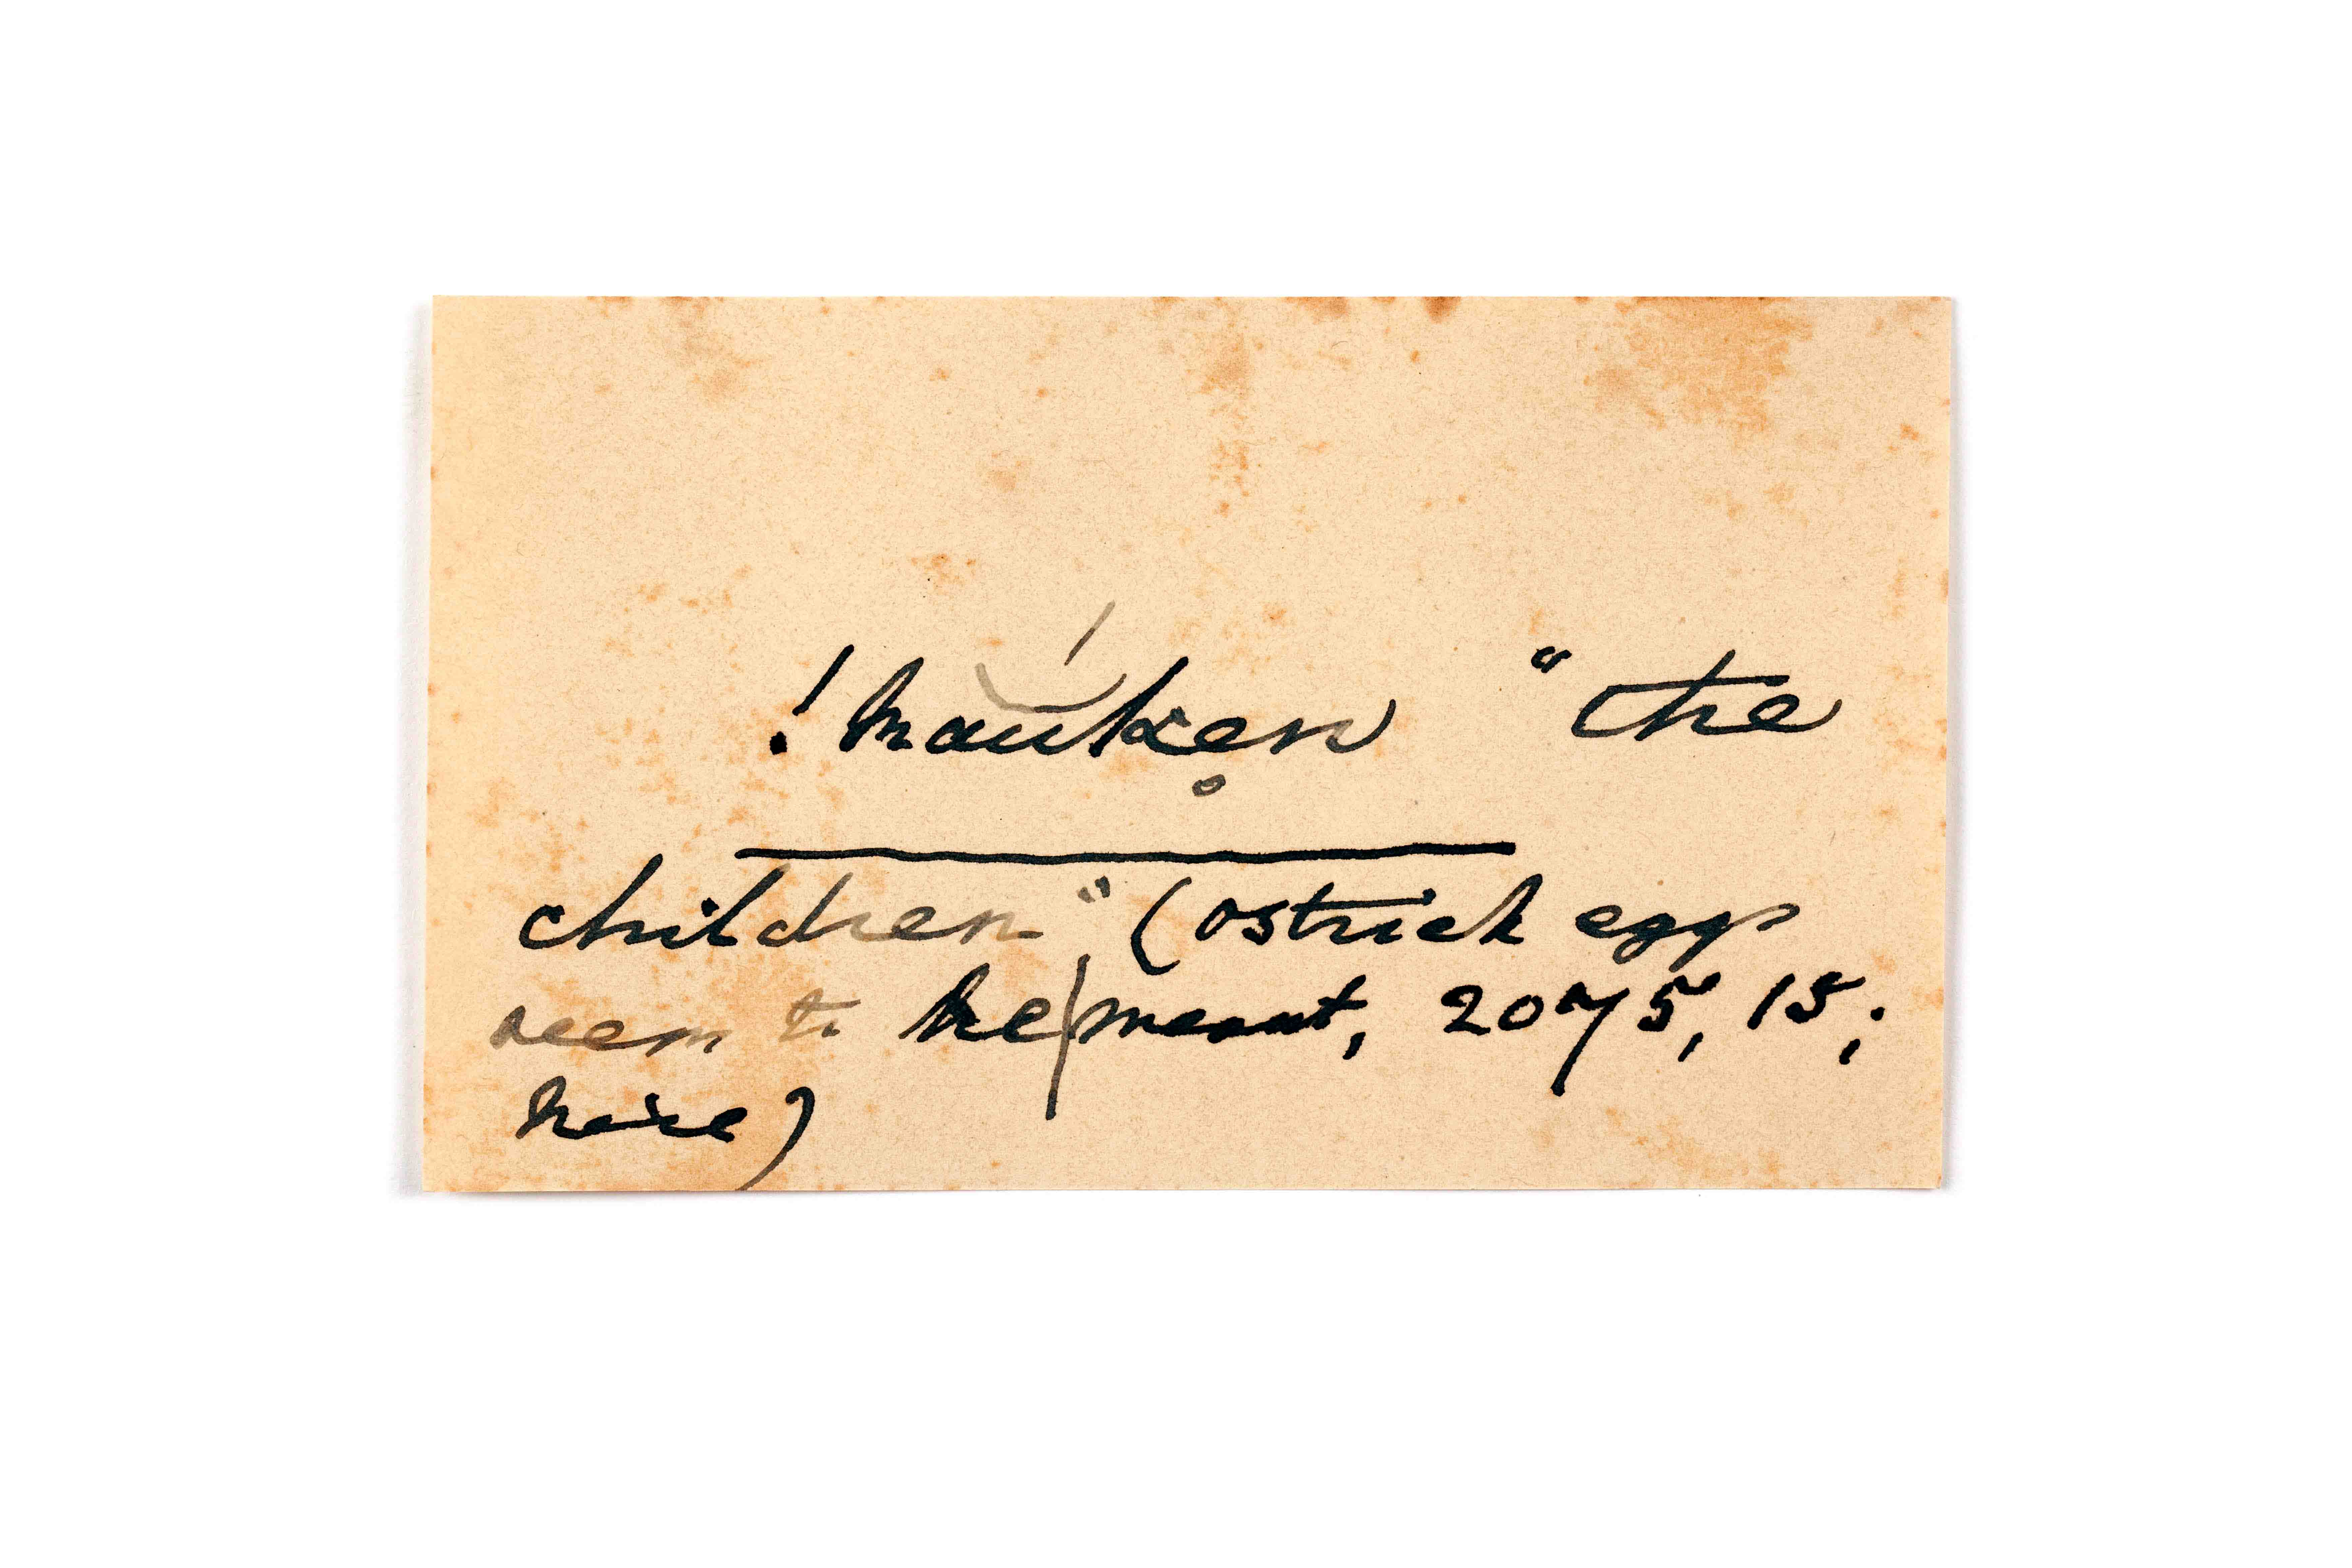 !háŭkẹn "the
children" (ostrich eggs
seem to be meant, 2075, 15,;
here)